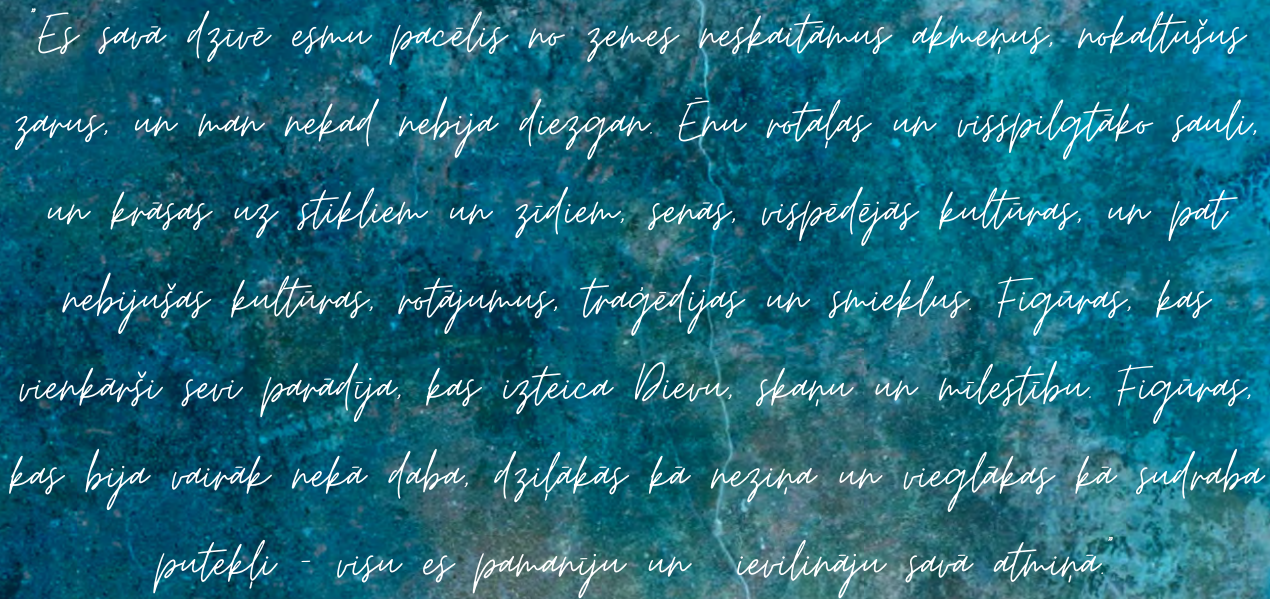 "Es savā dzīvē esmu pacēlis no zemes neskaitāmus akmeņus, nokaltušus
zarus, un man nekad nebija diezgan. Ēnu rotaļas un visspilgtāko sauli,
un krāsas uz stikliem un zīdiem, senās, vispēdējās kultūras, un pat
nebijušas kultūras, rotājumus, traģēdijas un smieklus. Figūras, kas
vienkārši sevi parādīja, kas izteica Dievu, skaņu un mīlestību. Figūras,
kas bija vairāk nekā daba, dziļākās kā neziņa un vieglākas kā sudraba
putekļi - visu es pamanīju un ievilināju savā atmiņā"